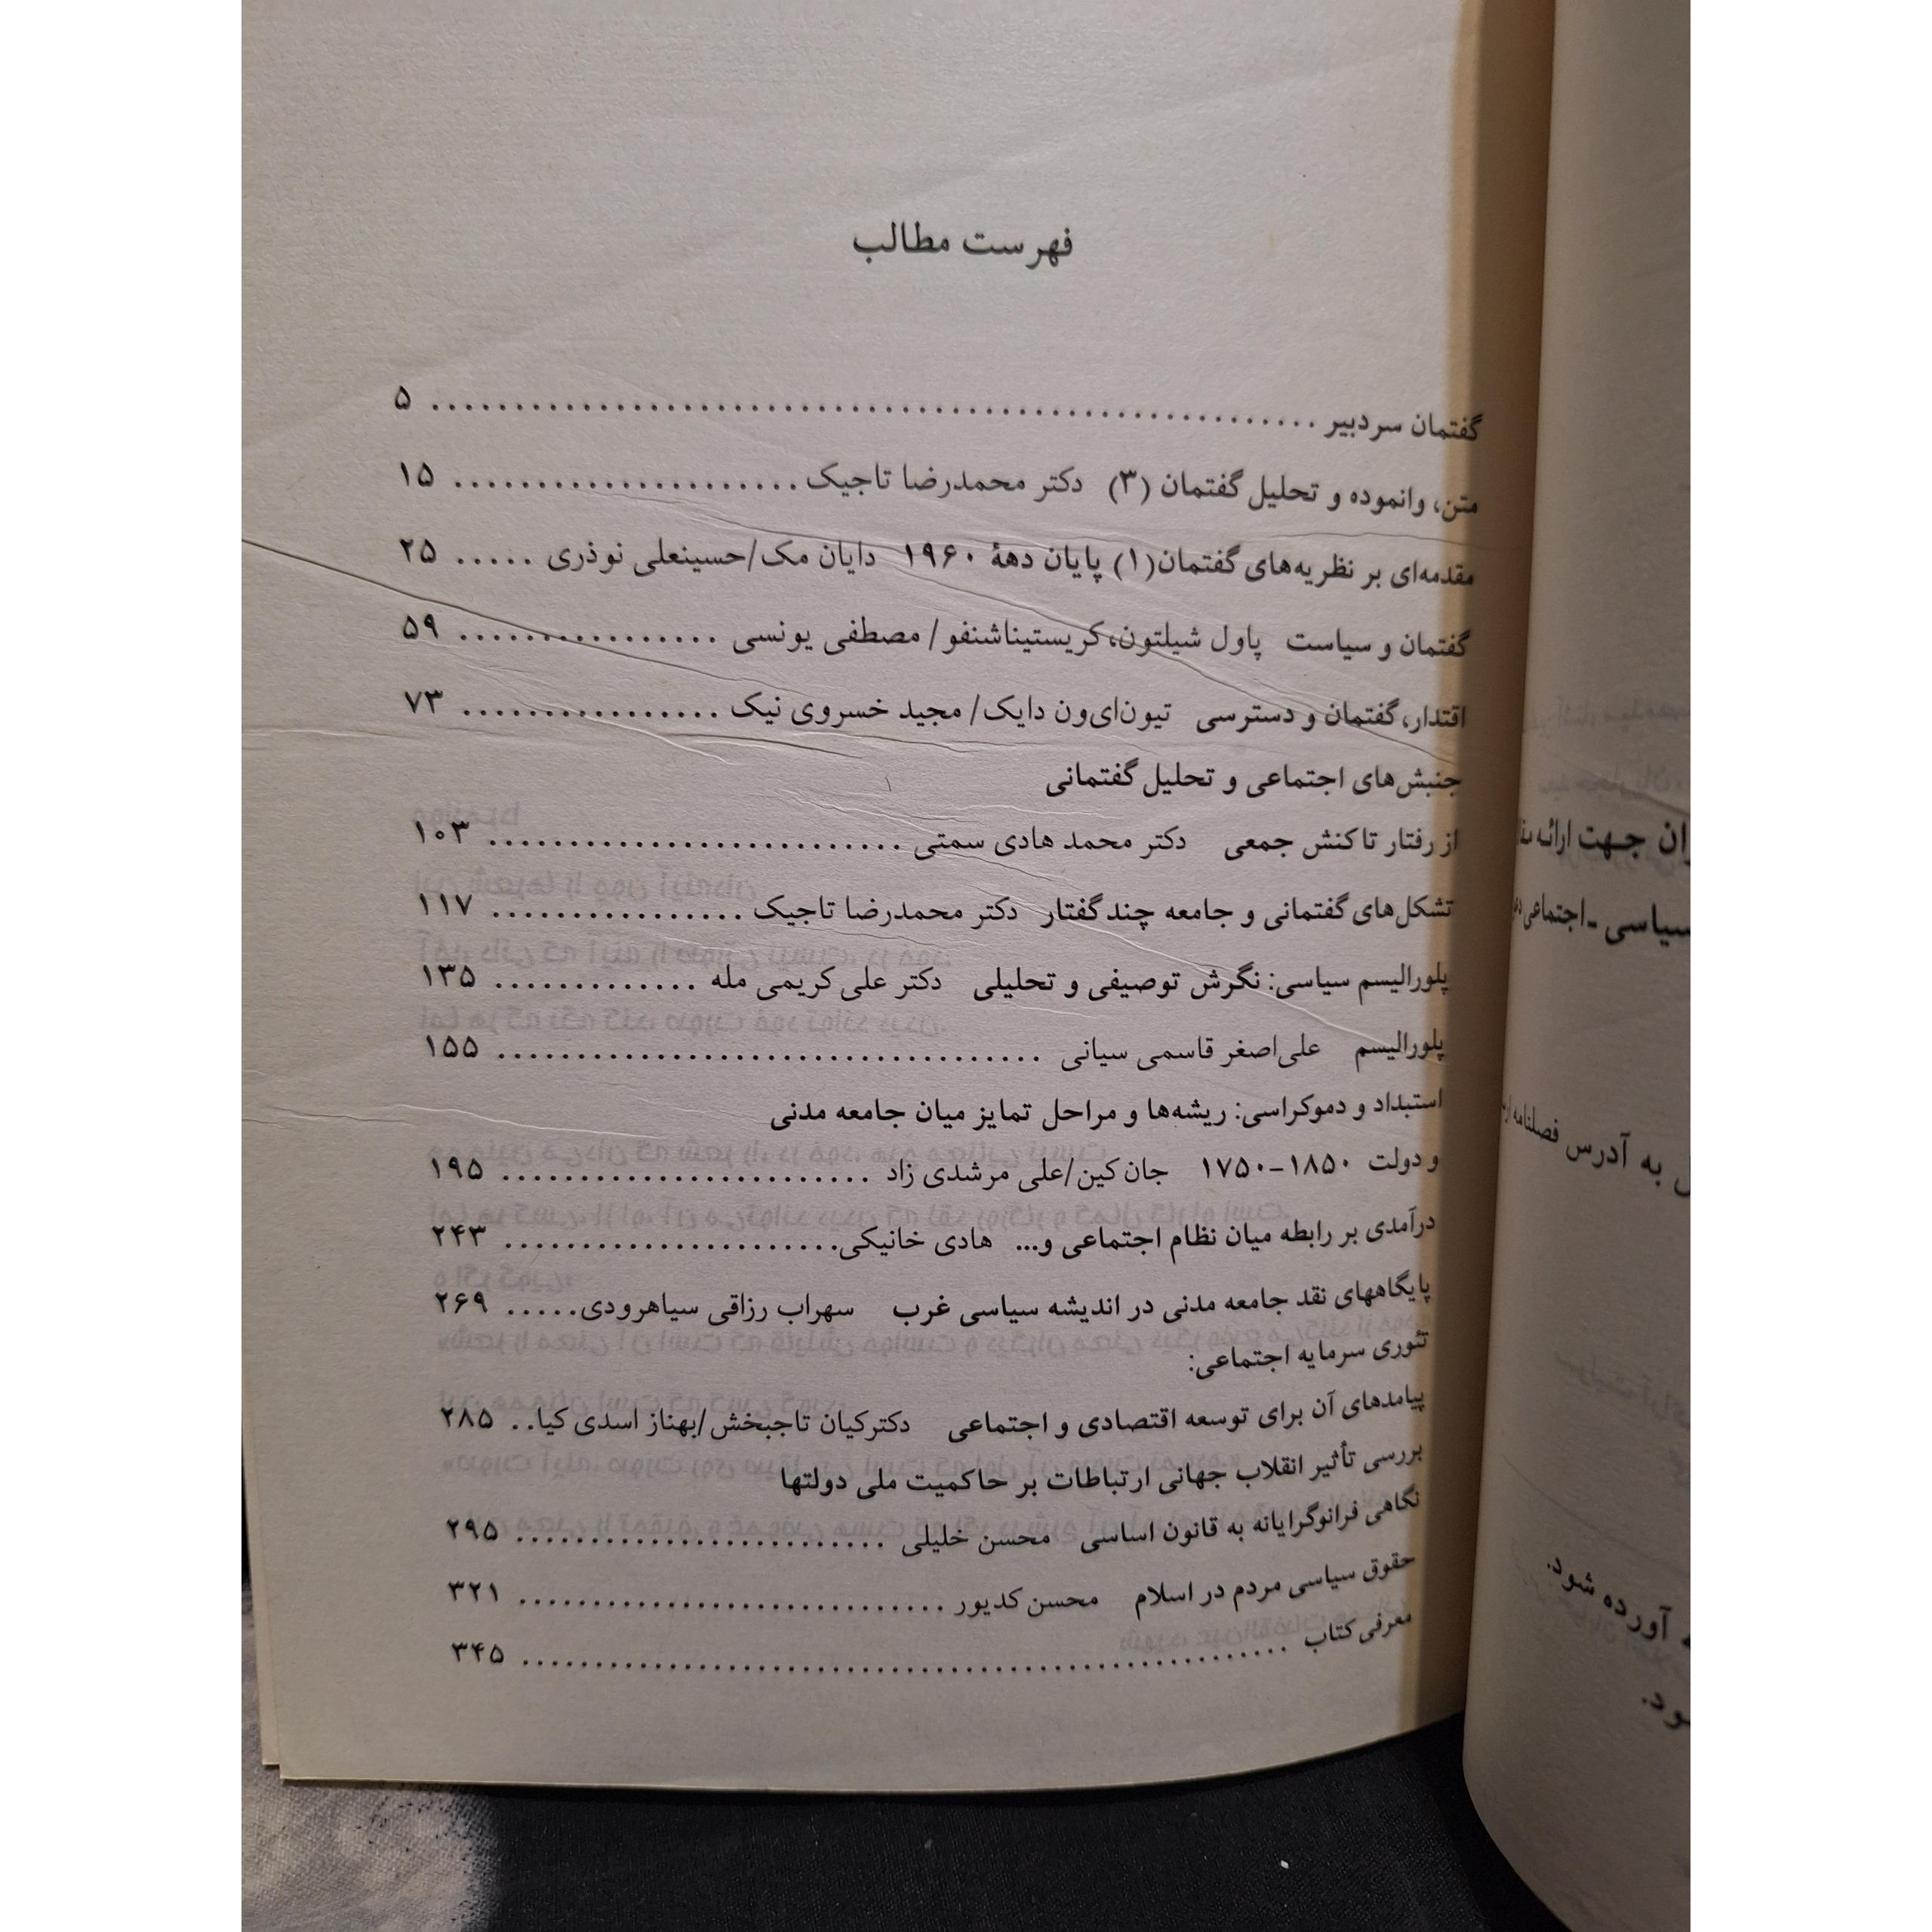 فهرست مطالب
گفتمان سردبیر ..................................................... ۵
متن، وانموده و تحلیل گفتمان (۳) دکتر محمدرضا تاجیک ..................... ۱۵
مقدمه‌ای بر نظریه‌های گفتمان(۱) پایان دههٔ ۱۹۶۰ دایان مک/حسینعلی نوذری ..... ۲۵
گفتمان و سیاست پاول شیلتون، کریستیناشنفو/ مصطفی یونسی ................ ۵۹
اقتدار، گفتمان و دسترسی تیون‌ای‌ون دایک/ مجید خسروی نیک ................ ۷۳
جنبش‌های اجتماعی و تحلیل گفتمانی
از رفتار تا کنش جمعی دکتر محمد هادی سمتی .......................... ۱۰۳
تشکل‌های گفتمانی و جامعه چند گفتار دکتر محمدرضا تاجیک ................ ۱۱۷
پلورالیسم سیاسی: نگرش توصیفی و تحلیلی دکتر علی کریمی مله ............. ۱۳۵
پلورالیسم علی‌اصغر قاسمی سیانی ................................... ۱۵۵
استبداد و دموکراسی: ریشه‌ها و مراحل تمایز میان جامعه مدنی
و دولت ۱۸۵۰-۱۷۵۰ جان کین/علی مرشدی زاد ........................ ۱۹۵
درآمدی بر رابطه میان نظام اجتماعی و... هادی خانیکی...................... ۲۴۳
پایگاههای نقد جامعه مدنی در اندیشه سیاسی غرب سهراب رزاقی سیاهرودی..... ۲۶۹
تئوری سرمایه اجتماعی:
پیامدهای آن برای توسعه اقتصادی و اجتماعی دکترکیان تاجبخش/بهناز اسدی کیا.. ۲۸۵
بررسی تأثیر انقلاب جهانی ارتباطات بر حاکمیت ملی دولتها
نگاهی فرانوگرایانه به قانون اساسی محسن خلیلی ......................... ۲۹۵
حقوق سیاسی مردم در اسلام محسن کدیور ............................ ۳۲۱
معرفی کتاب .................................................. ۳۴۵
جهت ارائه
سیاسی - اجتماعی
به آدرس فصلنامه
آورده شود.